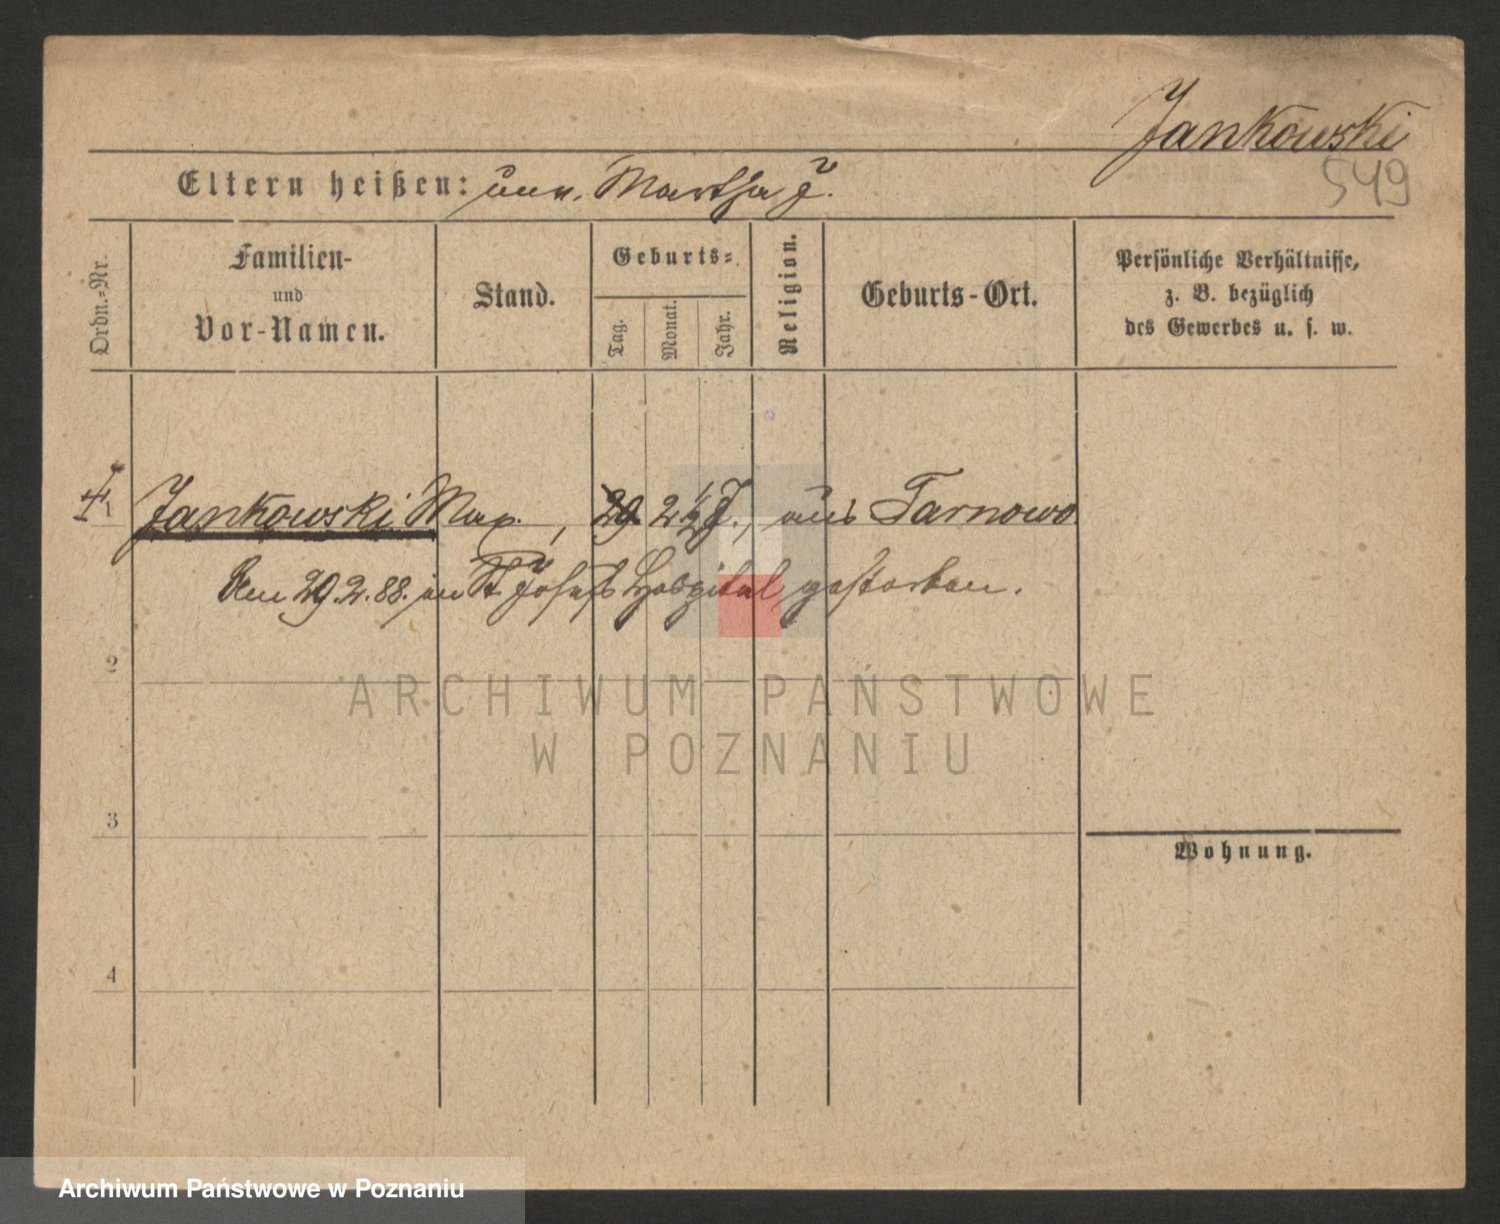 Jankowski
549
Eltern heißen: unv. Martha J.
Ordn.-Nr.
Familien-
und
Vor-Namen.
Stand.
Geburts-
Tag.
Monat.
Jahr.
Religion.
Geburts-Ort.
Persönliche Verhältnisse,
z. B. bezüglich
des Gewerbes u. s. w.
1 Jankowski Max, 29. 2 1/2 J., aus Tarnowo
Am 29.2.88. im St. Josefs Hospital gestorben.
2
3
4
Wohnung.
ARCHIWUM PAŃSTWOWE
W POZNANIU
Archiwum Państwowe w Poznaniu